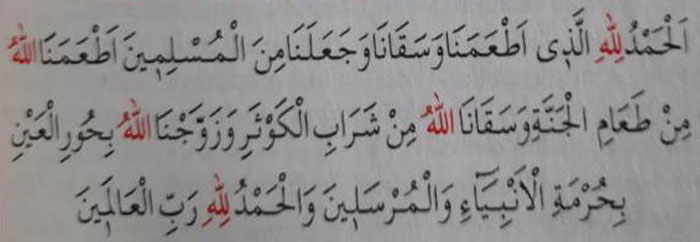 اَلْحَمْدُ لِلّٰهِ الَّذِى اَطْعَمَنَا وَسَقَانَا وَجَعَلَنَا مِنَ الْمُسْلِمِينَ اَطْعَمَنَا اللّٰهُ
مِنْ طَعَامِ الْجَنَّةِ وَسَقَانَا اللّٰهُ مِنْ شَرَابِ الْكَوْثَرِ وَزَوَّجْنَا اللّٰهُ بِحُورِ الْعَيْنِ
بِحُرْمَةِ الْاَنْبِيَٓاءِ وَالْمُرْسَلِينَ وَالْحَمْدُ لِلّٰهِ رَبِّ الْعَالَمِينَ